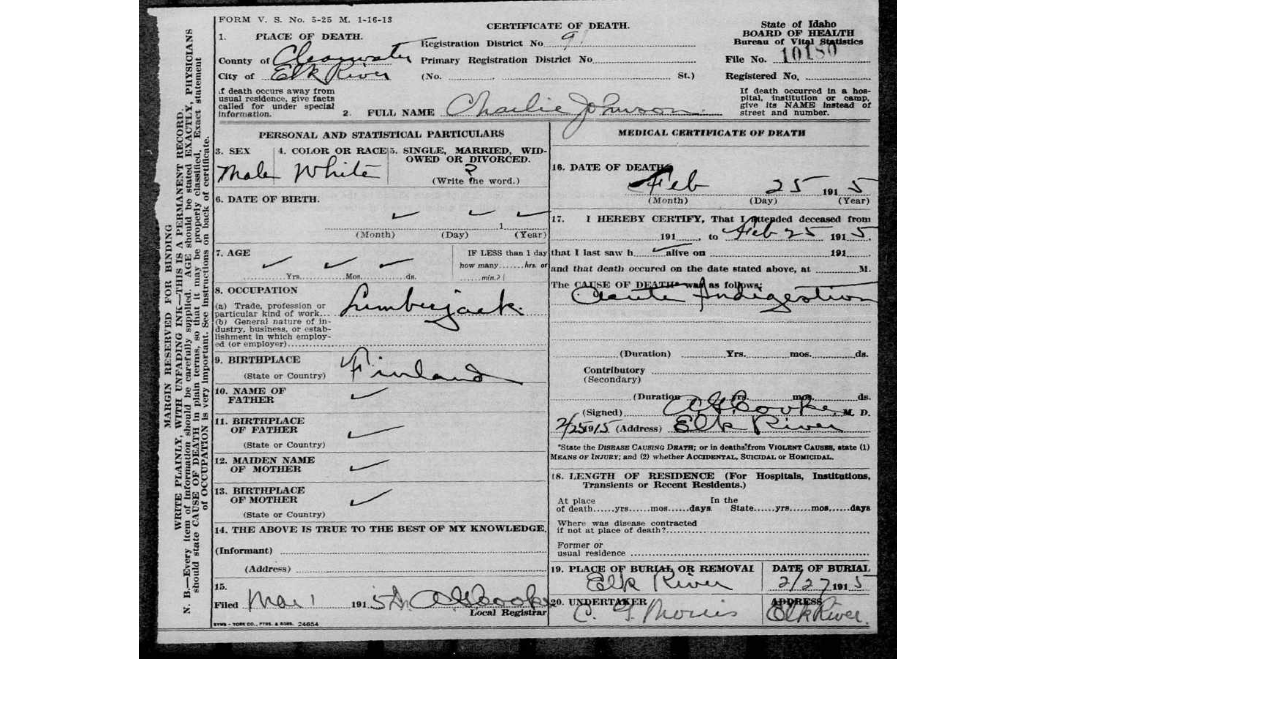 FORM V. S. No. 5-25 M. 1-16-13
CERTIFICATE OF DEATH.
State of Idaho
BOARD OF HEALTH
Bureau of Vital Statistics
File No. 10180
Registered No.
1. PLACE OF DEATH.
Registration District No 9
County of Clearwater Primary Registration District No.
City of Elk River (No. St.)
If death occurs away from
usual residence, give facts
called for under special
information.
2. FULL NAME Charlie Johnson
If death occurred in a hos-
pital, institution or camp,
give its NAME instead of
street and number.
MARGIN RESERVED FOR BINDING
WRITE PLAINLY, WITH UNFADING INK—THIS IS A PERMANENT RECORD.
N. B.—Every item of information should be carefully supplied. AGE should be stated EXACTLY, PHYSICIANS
should state CAUSE OF DEATH in plain terms, so that it may be properly classified. Exact statement
of OCCUPATION is very important. See instructions on back of certificate.
PERSONAL AND STATISTICAL PARTICULARS
3. SEX 4. COLOR OR RACE 5. SINGLE, MARRIED, WID-
OWED OR DIVORCED.
Male White ?
(Write the word.)
6. DATE OF BIRTH.
1
(Month) (Day) (Year)
7. AGE
Yrs. Mos. ds.
IF LESS than 1 day
how many hrs. or
min.?
8. OCCUPATION
(a) Trade, profession or
particular kind of work
Lumberjack
(b) General nature of in-
dustry, business, or estab-
lishment in which employ-
ed (or employer)
9. BIRTHPLACE
(State or Country)
Finland
10. NAME OF
FATHER
11. BIRTHPLACE
OF FATHER
(State or Country)
12. MAIDEN NAME
OF MOTHER
13. BIRTHPLACE
OF MOTHER
(State or Country)
14. THE ABOVE IS TRUE TO THE BEST OF MY KNOWLEDGE.
(Informant)
(Address)
15.
Filed Mar 1 1915
Local Registrar
SYMS - YORK CO., PTRS. & BDRS. 24654
MEDICAL CERTIFICATE OF DEATH
16. DATE OF DEATH
Feb 25 1915
(Month) (Day) (Year)
17. I HEREBY CERTIFY, That I attended deceased from
191 to Feb 25 1915
that I last saw h alive on 191
and that death occured on the date stated above, at M.
The CAUSE OF DEATH was as follows:
Acute Indigestion
(Duration) Yrs. mos. ds.
Contributory
(Secondary)
(Duration yrs. mos. ds.
(Signed) M. D.
2/25 1915 (Address) Elk River
*State the DISEASE CAUSING DEATH; or in deaths from VIOLENT CAUSES, state (1)
MEANS OF INJURY; and (2) whether ACCIDENTAL, SUICIDAL or HOMICIDAL.
18. LENGTH OF RESIDENCE (For Hospitals, Institutions,
Transients or Recent Residents.)
At place In the
of death yrs mos days State yrs mos days
Where was disease contracted
if not at place of death?
Former or
usual residence
19. PLACE OF BURIAL OR REMOVAL DATE OF BURIAL
Elk River 2/27 1915
20. UNDERTAKER ADDRESS
Morris Elk River.